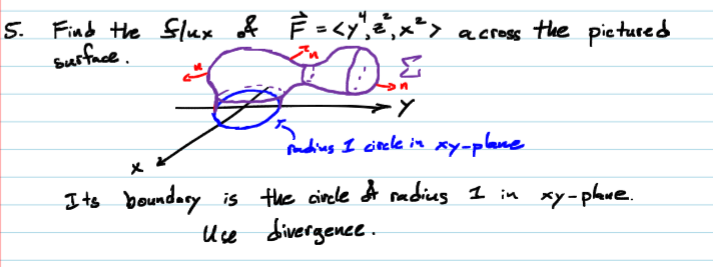 5. Find the flux of F⃗ = <y⁴, z², x²> across the pictured
surface.
n
n
Σ
n
y
radius 1 circle in xy-plane
x
Its boundary is the circle of radius 1 in xy-plane.
Use divergence.